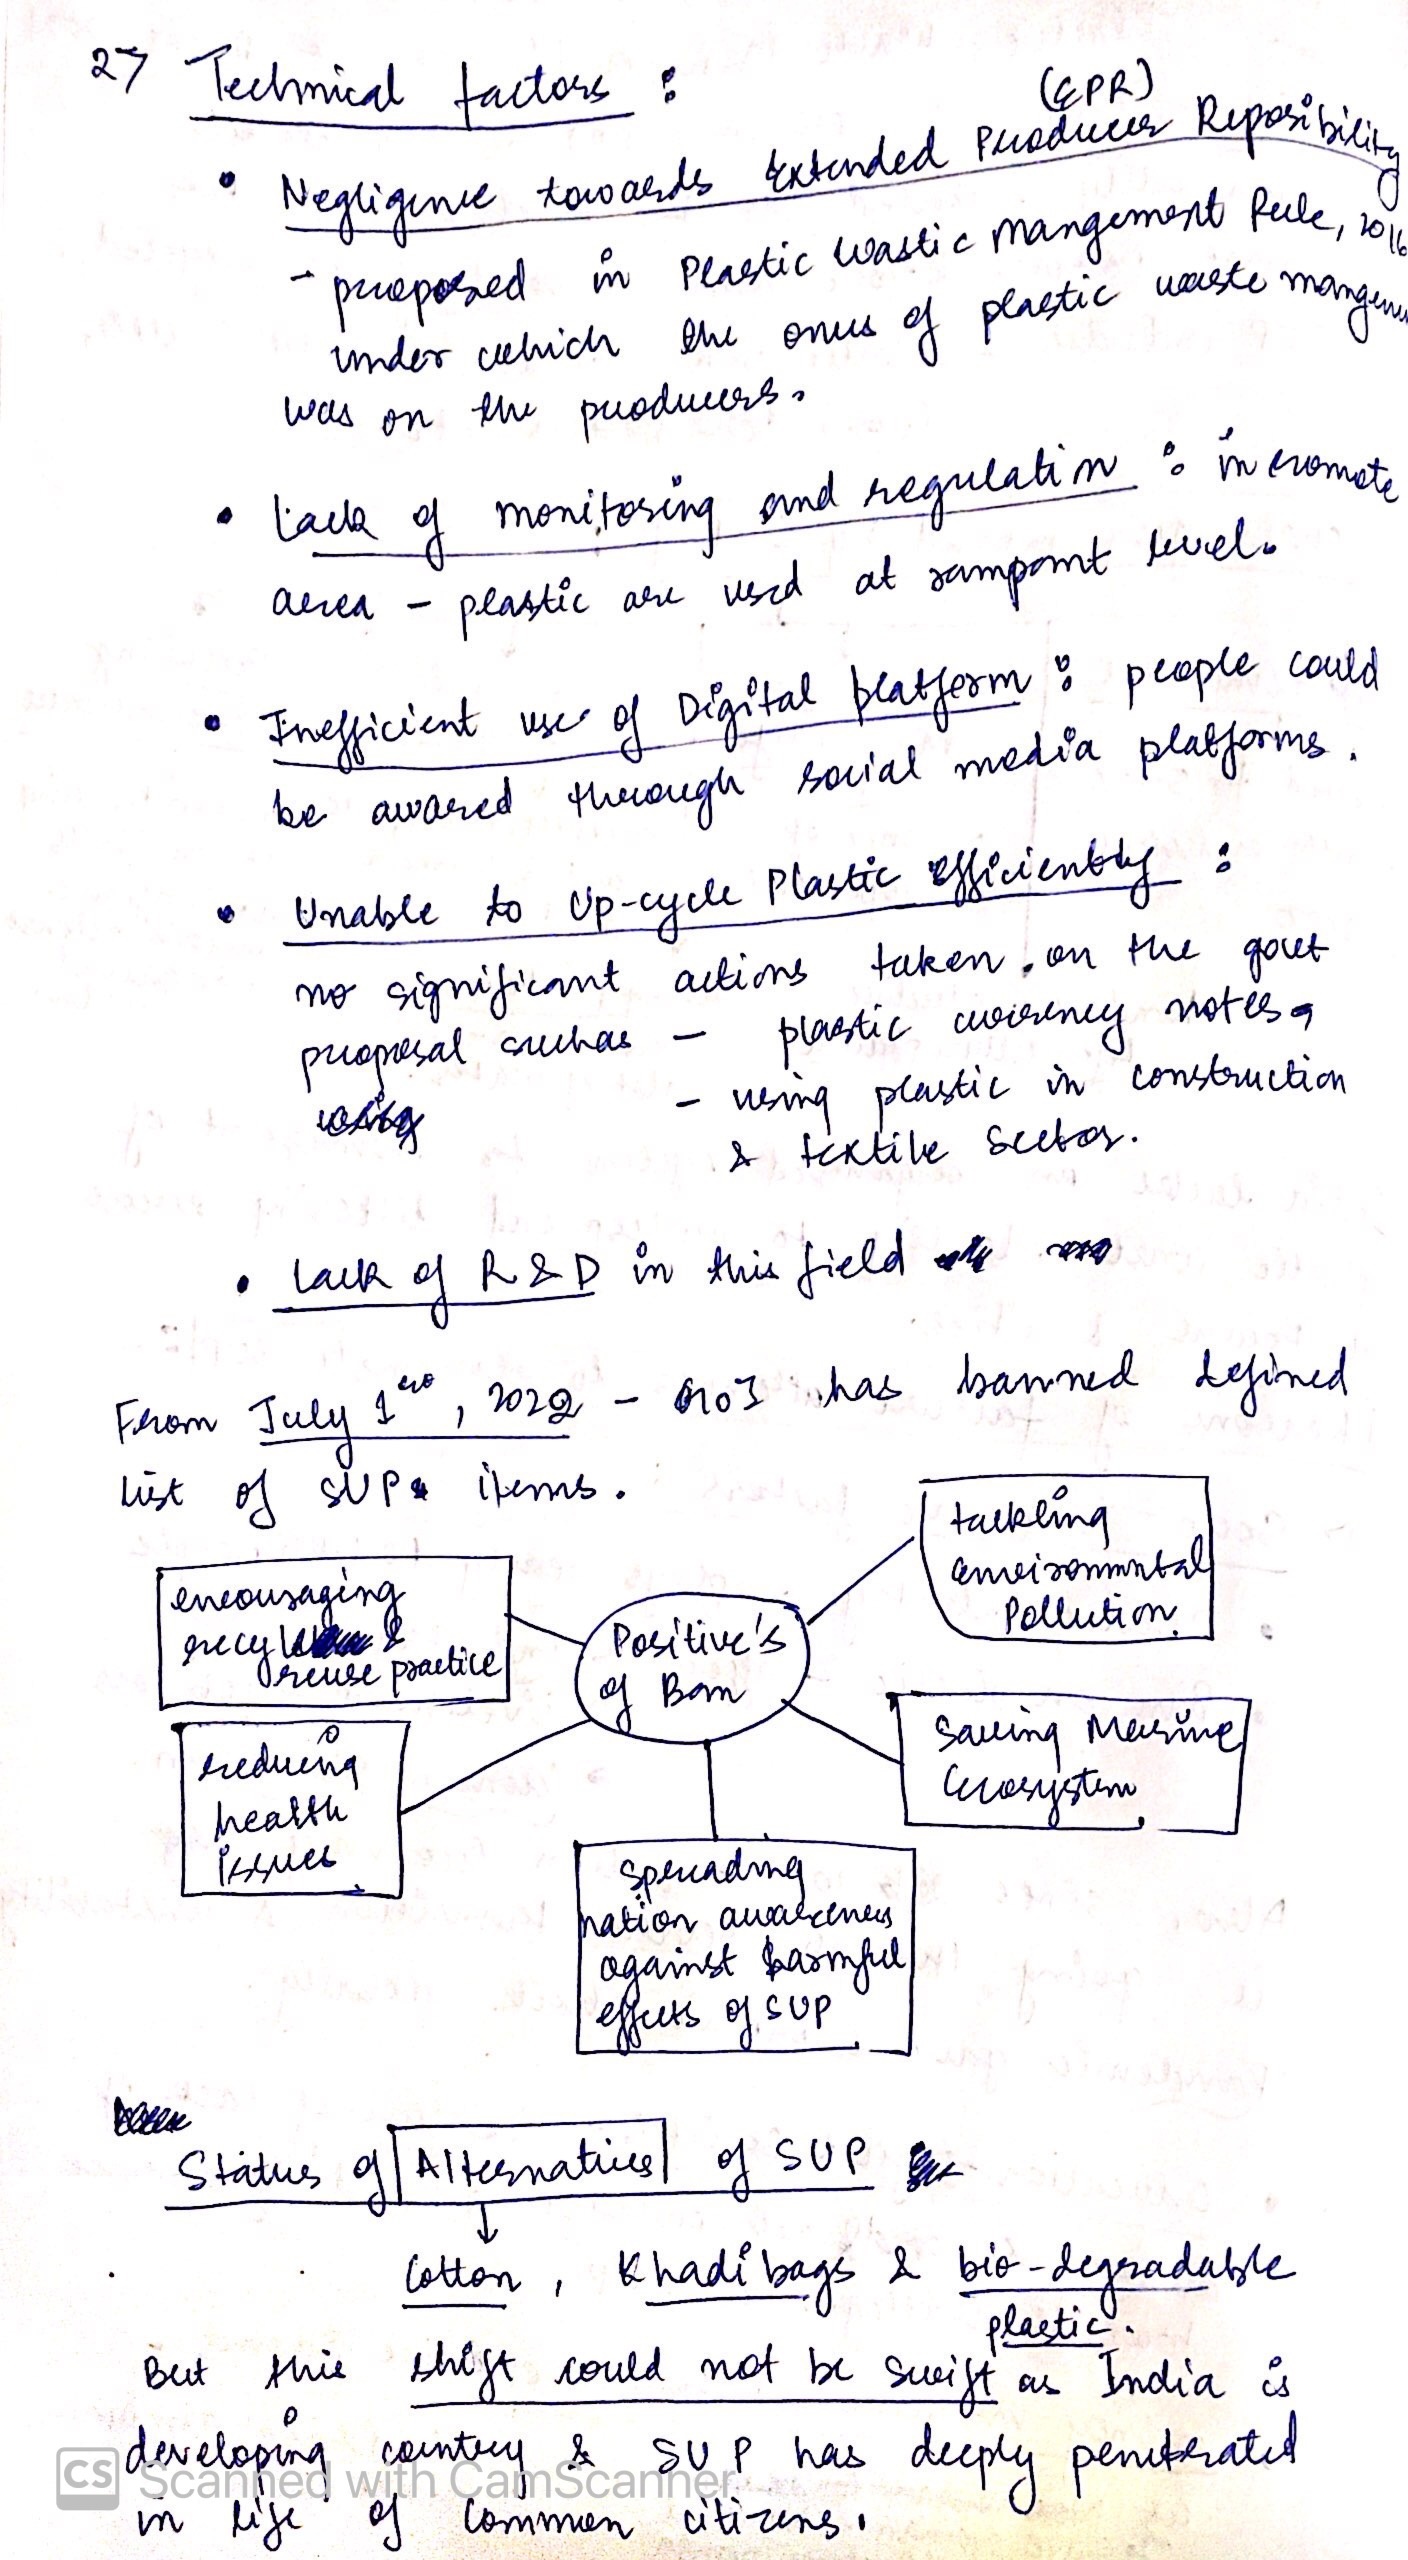 2) Technical factors :
(EPR)
• Negligence towards Extended Producer Reposibility
- proposed in Plastic Wastic Mangement Rule, 2016
under which the onus of plastic waste mangemen
was on the producers.
• Lack of monitoring and regulation : in remote
area - plastic are used at rampant level.
• Inefficient use of Digital platform : people could
be awared through social media platforms.
• Unable to Up-cycle Plastic efficiently :
no significant actions taken on the govt
proposal such as - plastic currency notes,
- using plastic in construction
& textile sector.
• Lack of R & D in this field
From July 1st, 2022 - GoI has banned defined
list of SUP items.
tackling
environmental
Pollution.
encouraging
recycle &
reuse practice
Positive's
of Ban
Saving Marine
Ecosystem
reducing
health
issues
spreading
nation awareness
against harmful
effects of SUP
Status of Alternatives of SUP
Cotton, Khadi bags & bio-degradable
plastic.
But this shift could not be swift as India is
developing country & SUP has deeply peneterated
in life of common citizens.
CS Scanned with CamScanner